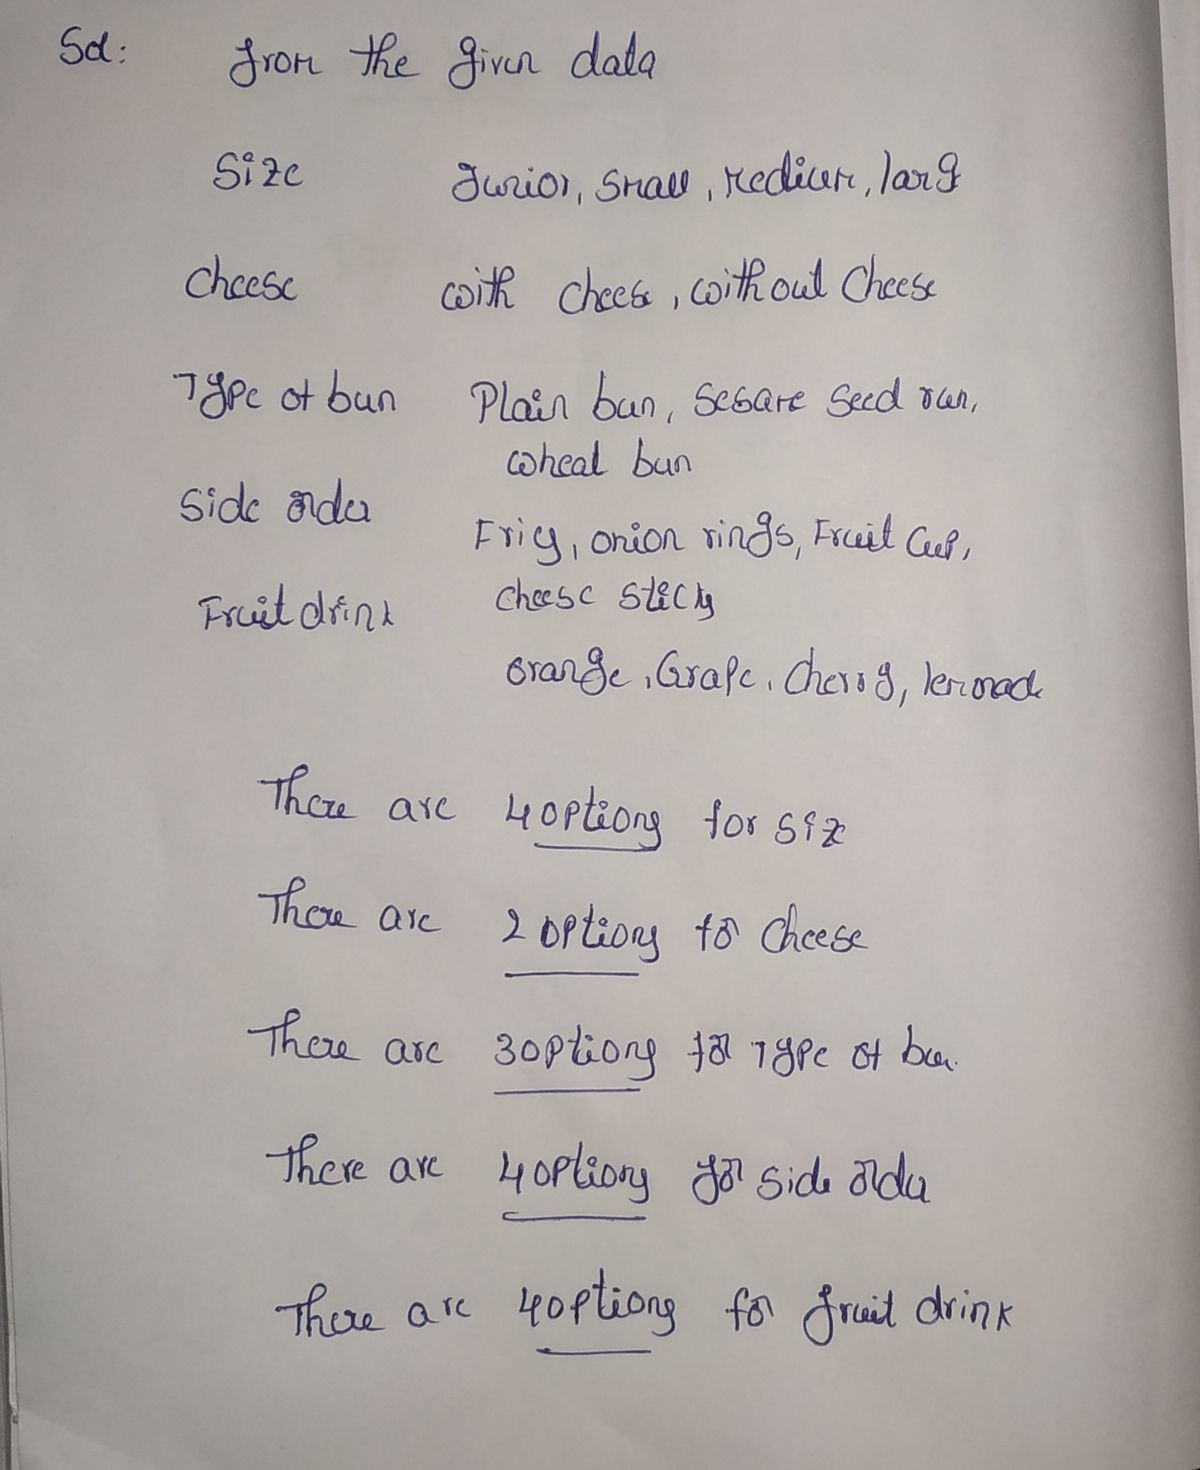 Sol: from the given data
Size Junior, Small, Medium, larg
Cheese with cheese, without Cheese
Type of bun Plain bun, Sesame Seed bun,
wheat bun
Side order Fries, onion rings, Fruit Cup,
Cheese sticks
Fruit drink
orange, Grape, Cherry, lemonade
There are 4 options for size
There are 2 options for Cheese
There are 3 options for Type of bun.
There are 4 options for side order
There are 4 options for fruit drink